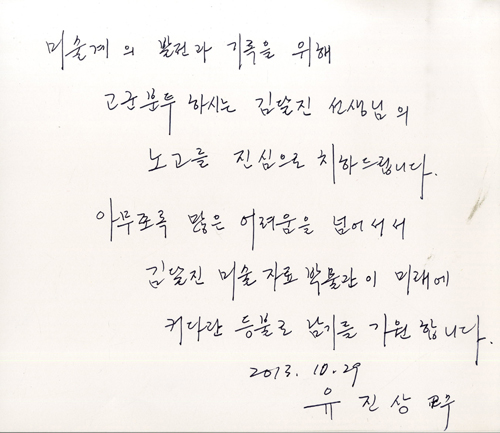 미술계의 발전과 기록을 위해
고군분투 하시는 김달진 선생님의
노고를 진심으로 치하드립니다.
아무쪼록 많은 어려움을 넘어서서
김달진 미술 자료 박물관이 미래에
커다란 등불로 남기를 기원합니다.
2013. 10. 29
유 진 상